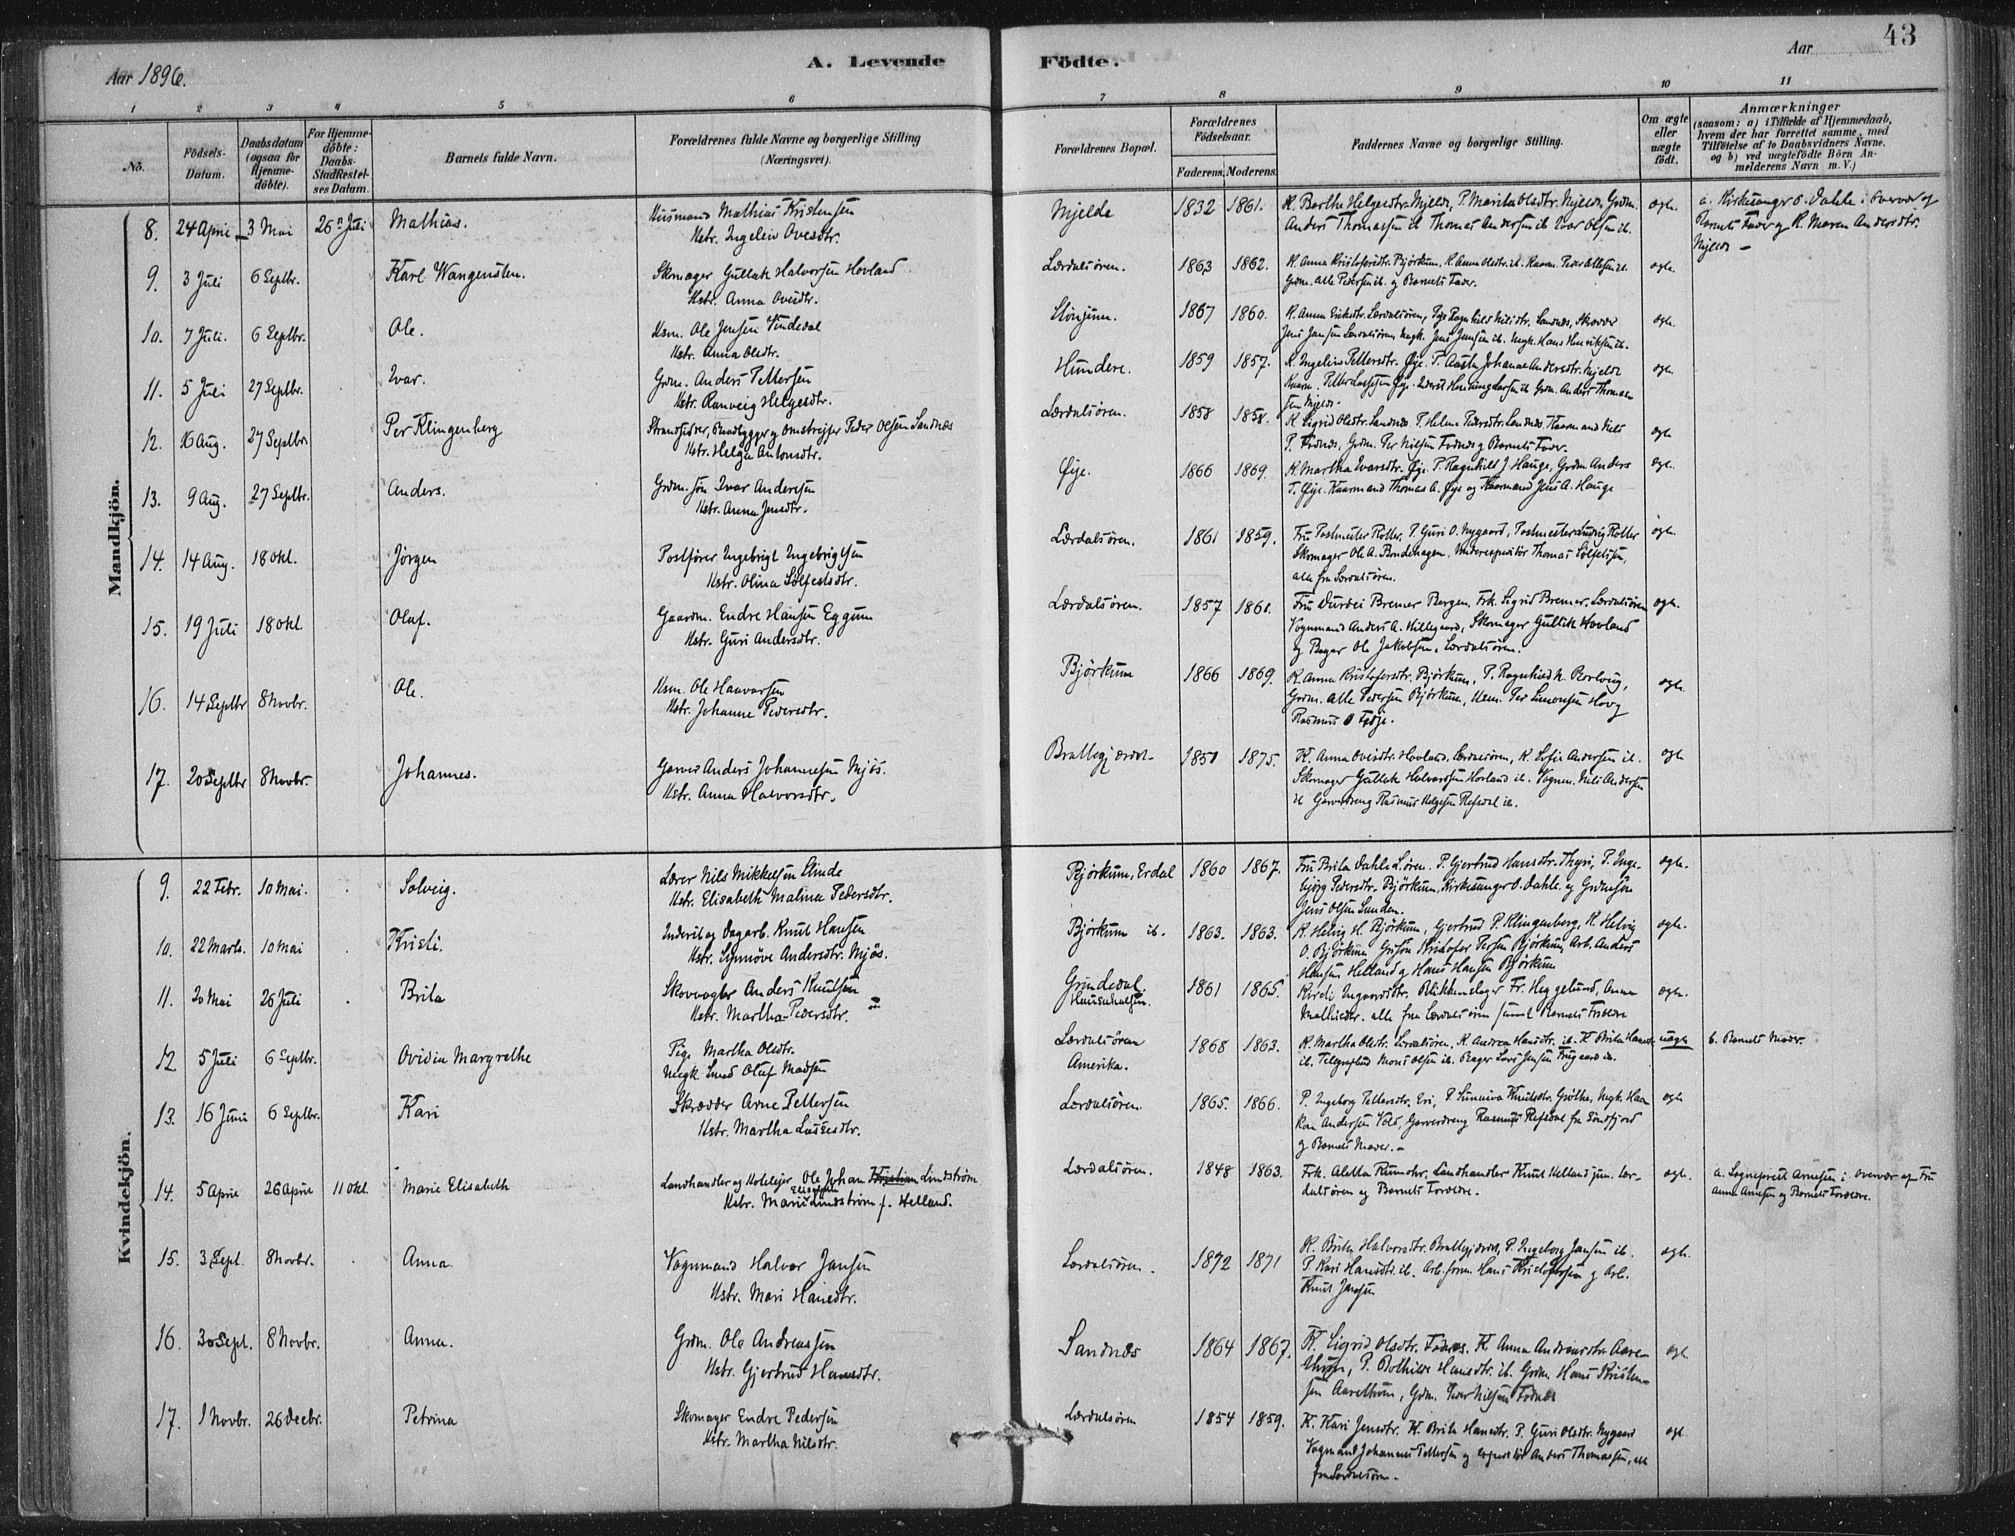 43
Aar 1896.
A. Levende
Födte.
Aar
1 2 3 4 5 6 7 8 9 10 11
No.
Födsels-Datum.
Daabsdatum (ogsaa for Hjemme-döbte).
For Hjemme-döbte: Daabs-Stadfæstel-ses Datum.
Barnets fulde Navn.
Forældrenes fulde Navne og borgerlige Stilling (Næringsvei).
Forældrenes Bopæl.
Forældrenes Födselsaar.
Faderens. Moderens.
Faddernes Navne og borgerlige Stilling.
Om ægte eller uægte födt.
Anmærkninger
(saasom: a) i Tilfælde af Hjemmedaab, hvem der har forrettet samme, med Tilföielse af to Daabsvidners Navne, og b) ved uægtefödte Börn An-melderens Navn m. V.)
Mandkjön.
8. 24 April 3 Mai 26 Juli Mathias. Husmand Mathias Kristensen
Hstr. Ingeleiv Ovesdtr.
Mjelde 1832 1861. K. Barthe Helgesdtr. Mjelde, P. Marita Olsdtr. Mjelde, Grdm.
Anders Thomassen ib Thomas Andersen ib Ivar Olsen ib.
ægte. a. Kirkesanger O. Dahle i overvær af
Barnets Fader og K. Maren Andersdtr.
Mjelde
9. 3 Juli 6 Septbr. Karl Wangensten. Skomager Gullak Halvorsen Hovland
Hstr. Anna Ovesdtr.
Lærdalsören. 1863 1862. K. Anna Kristofersdtr. Björkum, K. Anna Olsdtr. ib.
Grdm. Atle Pedersen ib. og Barnets Fader.
ægte.
10. 7 Juli. 6 Septbr. Ole. Hsm. Ole Jensen Vindedal
Hstr. Anna Olsdtr.
1867 1860. K. Anna Eriksdtr. Lærdalsören, Pige Ragnhild Nilsdtr. Sandnæs,
Jens Jansen Lærdalsören Ungk. Jens Jensen ib. Ungk. Hans Henriksen ib.
ægte.
11. 5 Juli 27 Septbr. Ivar. Grdm. Anders Pettersen
Hstr. Ranveig Helgesdtr.
Hundere. 1859 1857. K. Ingeleiv Pettersdtr. Øye. P. Aasta Johanne Andersdtr. Mjelde
Grdm. Anders Thomas-
sen Mjelde.
ægte.
12. 16 Aug. 27 Septbr Per Klingenberg Peder Olsen Sandnæs
Hstr. Helga Antonsdtr.
Lærdalsören. 1858 1858. K. Sigrid Olsdtr. Sandnæs. P. Helene Pedersdtr. Sandnæs. Kaarmand Nils
P. Fodnæs, Grdm. Per Nilsen Fodnæs og Barnets Fader.
ægte
13. 9 Aug. 27 Septbr. Anders. Grdm. sön Ivar Andersen
Hstr. Anna Jensdtr.
Øye. 1866 1869. K. Martha Ivarsdtr. Øye. P. Ragnhild J Hauge, Grdm Anders
T. Øye. Kaarmand Thomas A. Øye og Kaarmand Jens A. Hauge
ægte.
14. 14 Aug. 18 Okt. Jörgen Postförer Ingebrigt Ingebrigtsen
Hstr. Olina Sölfestsdtr.
Lærdalsören. 1861 1859. Fru Postmester Kotter, P. Guri O. Nygaard, Postmester Ludvig Kotter
Skomager Ole A. Bondehagen, Underexpeditör Thomas Sölfestsen,
alle fra Lærdalsören.
ægte.
15. 19 Juli 18 Okt Olaf. Gaardm. Endre Hansen Eggum
Hstr. Guri Andersdtr.
Lærdalsören. 1857 1860. Fru Durdei Bremer Bergen. Frk. Sigrid Bremer. Lærdalsören
Vognmand Anders A. Hillegaard, Skomager Gullik Hovland
og Bager Ole Jakobsen. Lærdalsören.
ægte.
16. 14 Septbr 8 Novbr. Ole. Hsm. Ole Haavarsen
Hstr. Johanne Pedersdtr.
Björkum 1866 1869. K. Anna Kristofersdtr. Björkum, P. Ragnhild
Grdm. Atle Pedersen Björkum, Hsm. Per Simonsen Hovg
Rasmus O
ægte.
17. 20 Septbr 8 Novbr. Johannes. Garver Anders Johannesen Mjös.
Hstr. Anna Halvorsdtr.
1850 1875. K. Anna Ovesdtr. Hovland. Lærdalsören, K. Sofie Andersen ib
Skomager Gullak Halvorsen Hovland ib. Vognm. Nils Andersen
ib Garverdreng Rasmus Helgesen Refsdal ib.
ægte
Kvindekjön.
9. 22 Febr. 10 Mai. Solveig. Lærer Nils Mikkelsen Elnde
Hstr. Elisabeth Malina Pedersdtr.
Björkum. Erdal 1860 1867. Fru Brita Dahle Lören. P. Gjertrud Hansdtr. Thyri, P. Inge-
björg Pedersdtr. Björkum, Kirkesanger O. Dahle. og Grdmsön
Jens Olsen Sanden.
ægte.
10. 22 Marts. 10 Mai Kristi. Inderst og Dagarb. Knut Hansen
Hstr. Synnöve Andersdtr. Mjös.
Björkum ib. 1863. 1863. K. Helvig H. Björkum, Gjertrud P. Klingenberg, K. Helvig
O. Björkum Kristofer Persen Björkum, Arb. Anders
Hansen Helland og Hans Hansen Björkum
ægte.
11. 20 Mai 26 Juli Brita Skovvogter Anders Knutsen
Hstr. Martha Pedersdtr.
Grindedal 1861 1865. Blikkenslager Fr. Heggelund, Anna
alle fra Lærdalsören samt Barnets Forældre
ægte.
12 5 Juli 6 Septbr. Ovidia Margrethe Pige Martha Olsdtr.
Ungk. Smed Oluf Madsen
Lærdalsören
Amerika.
1868 1863. K. Martha Olsdtr. Lærdalsören, K. Andrea Hansdtr. ib. K Brita Hansdtr.
ib. Telegrafbud Mons Olsen ib. Bager Lars Jensen ib.
uægte b. Barnets Moder.
13. 16 Juni 6 Septbr. Kari Skrædder Arne Pettersen
Hstr. Martha Lassesdtr.
Lærdalsören. 1865. 1866. P. Ingeborg Pettersdtr. Eri, P. Sunniva Knudsdtr. Grötte, Ungk. Haa-
kon Andersen Vold, Garverdreng Rasmus Refsdal fra Söndfjord
og Barnets Moder.
ægte
14. 5 April 26 April 11 Okt. Marie Elisabeth Landhandler og Hoteleier Ole Johan Kristian Lindström
Elisabeth
Hstr. Marie Lindström f. Helland.
Lærdalsören. 1848 1863. Frk. Aletta Rumohr, Landhandler Knut Helland jun. Lær-
dalsören og Barnets Forældre.
ægte. a. Sogneprest Arnesen i overvær af Fru
Anna Arnesen og Barnets Forældre.
15. 3 Sept. 8 Novbr. Anna Vognmand Halvor Jansen
Hstr. Mari Hansdtr.
Lærdalsören. 1872 1871 K. Brita Halvorsdtr. P. Ingeborg Jansen ib.
P. Kari Hansdtr. ib. Arb. form. Hans Kristofersen og Arb.
Knut Jansen
ægte.
16. 30 Sept. 8 Novbr. Anna. Grdm. Ole Andreassen
Hstr. Gjertrud Hansdtr.
Sandnæs 1864 1867. K. Sigrid Olsdtr. Fodnæs. K Anna Andreasdtr. Aare-
thun, P. Bothilde Hansdtr. ib. Grdm. Hans Kristen-
sen Aarethun, Grdm. Peder Nilsen Fodnæs
ægt.
17. 1 Novbr. 26 Decbr. Petrina Skomager Endre Pedersen
Hstr. Martha Nilsdtr.
Lærdalsören 1854 1859. K. Kari Jensdtr. K. Brita Hansdtr. P. Guri Olsdtr. Nygaard
Vognmand Johannes Pettersen og expeditör Anders Thomassen, alle
fra Lærdalsören.
ægt.